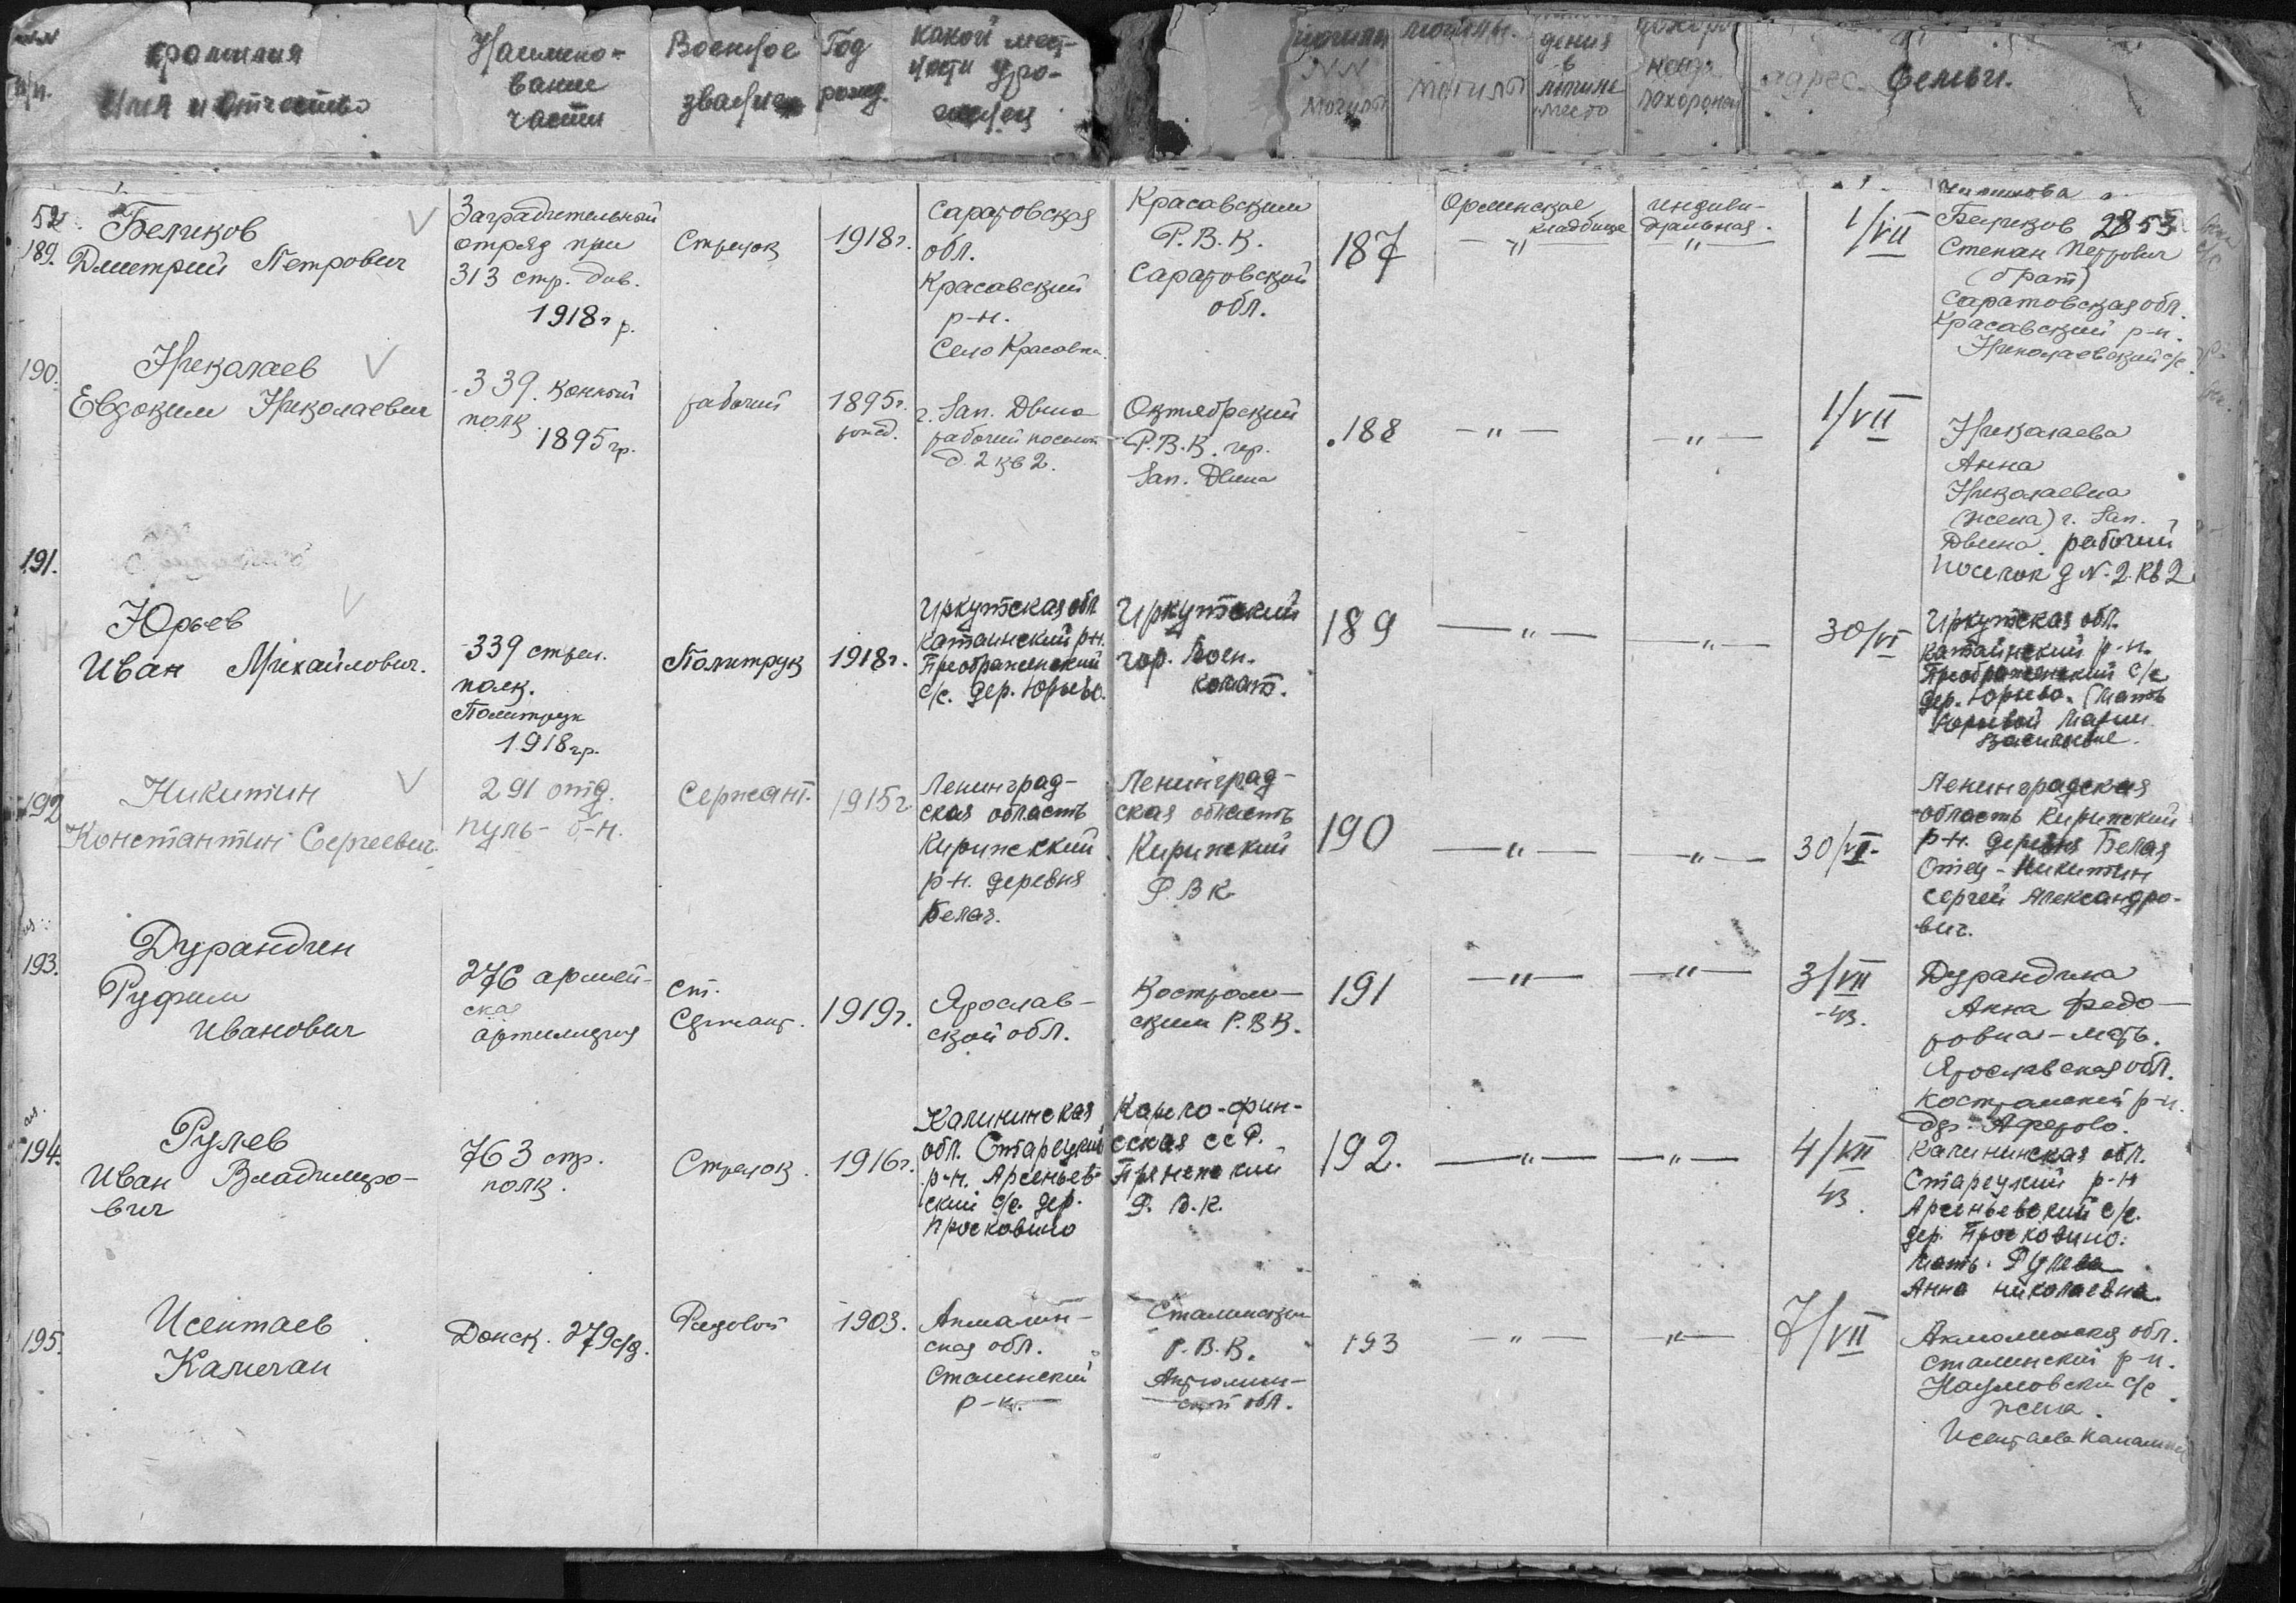 фамилия
Имя и Отчество
Наимено-
вание
части
Военное
звание
Год
рожд.
какой мест-
ности уро-
женец
NN
могилы
могилы.
могилы
дения
в
могиле
место
похорон
адрес. Семьи.
52
189.
Беликов
Дмитрий Петрович
Заградительный
отряд при
313 стр. див.
1918 г р.
Стрелок
1918г.
Саратовская
обл.
Красавский
р-н.
Село Красавка.
Красавским
Р.В.К.
Саратовской
обл.
187
Орлинское
кладбище
— " —
индиви-
дуальная.
— " —
1/VII
Беликов 2853
Степан Петрович
(брат)
Саратовская обл.
Красавский р-н.
Николаевский с/с.
190.
Николаев
Евдоким Николаевич
339. конный
полк
1895 гр.
рабочий
1895г.
рожд.
г. Зап. Двина
рабочий поселок
д. 2 кв 2.
Октябрский
Р.В.К. гор.
Зап. Двина
188
— " —
— " —
1/VII
Николаева
Анна
Николаевна
(жена) г. Зап.
Двина. рабочий
поселок д N. 2. кв 2
191.
Юрьев
Иван Михайлович.
339 стрел.
полк.
Политрук
1918 гр.
Политрук
1918г.
Иркутская обл
Катаинский р-н.
Преображенский
с/с. дер. Юрьево.
Иркутский
гор. Воен.
комат.
189
— " —
— " —
30/VI
Иркутская обл.
Катаинский р-н.
Преображенский с/с
дер. Юрьево. (Мать
Юрьевой Марии
Васильевне.
192
Никитин
Константин Сергеевич.
291 отд.
пуль- б-н.
Сержант.
1915г
Ленинград-
ская область
Киришский
р-н. деревня
Белая.
Ленинград-
ская область
Киришский
Р.В К
190
— " —
— " —
30/VI.
Ленинградская
область Киришский
р-н. деревня Белая
Отец - Никитин
Сергей Александро-
вич.
193.
Дурандин
Руфим
Иванович
276 армей-
ская
артиллерия
ст.
Сержант.
1919г.
Ярослав-
ской обл.
Костром-
ским Р.В.К.
191
— " —
— " —
3/VII
-43.
Дурандина
Анна Федо-
ровна - мать.
Ярославская обл.
Костромской р-н.
дер. Аферово.
194.
Рулев
Иван Владимиро-
вич
763 стр.
полк.
Стрелок.
1916г.
Калининская
обл. Старецкий
р-н. Арсеньев-
ский с/с. дер.
Просковино
Карело-фин-
сская ССР.
Пряженский
Р. В.К.
192.
— " —
— " —
4/VII
43.
Калининская обл.
Старецкий р-н
Арсеньевский с/с.
дер. Просковино.
Мать. Рулева
Анна Николаевна.
195.
Исентаев
Камечан
Донск. 279 с/д.
Рядовой
1903.
Акмалин-
ская обл.
Сталинский
р-н.
Сталинским
Р.В.К.
Акмолин-
ской обл.
193
— " —
— " —
7/VII
Акмолинская обл.
Сталинский р-н.
Наумовский с/с.
жена.